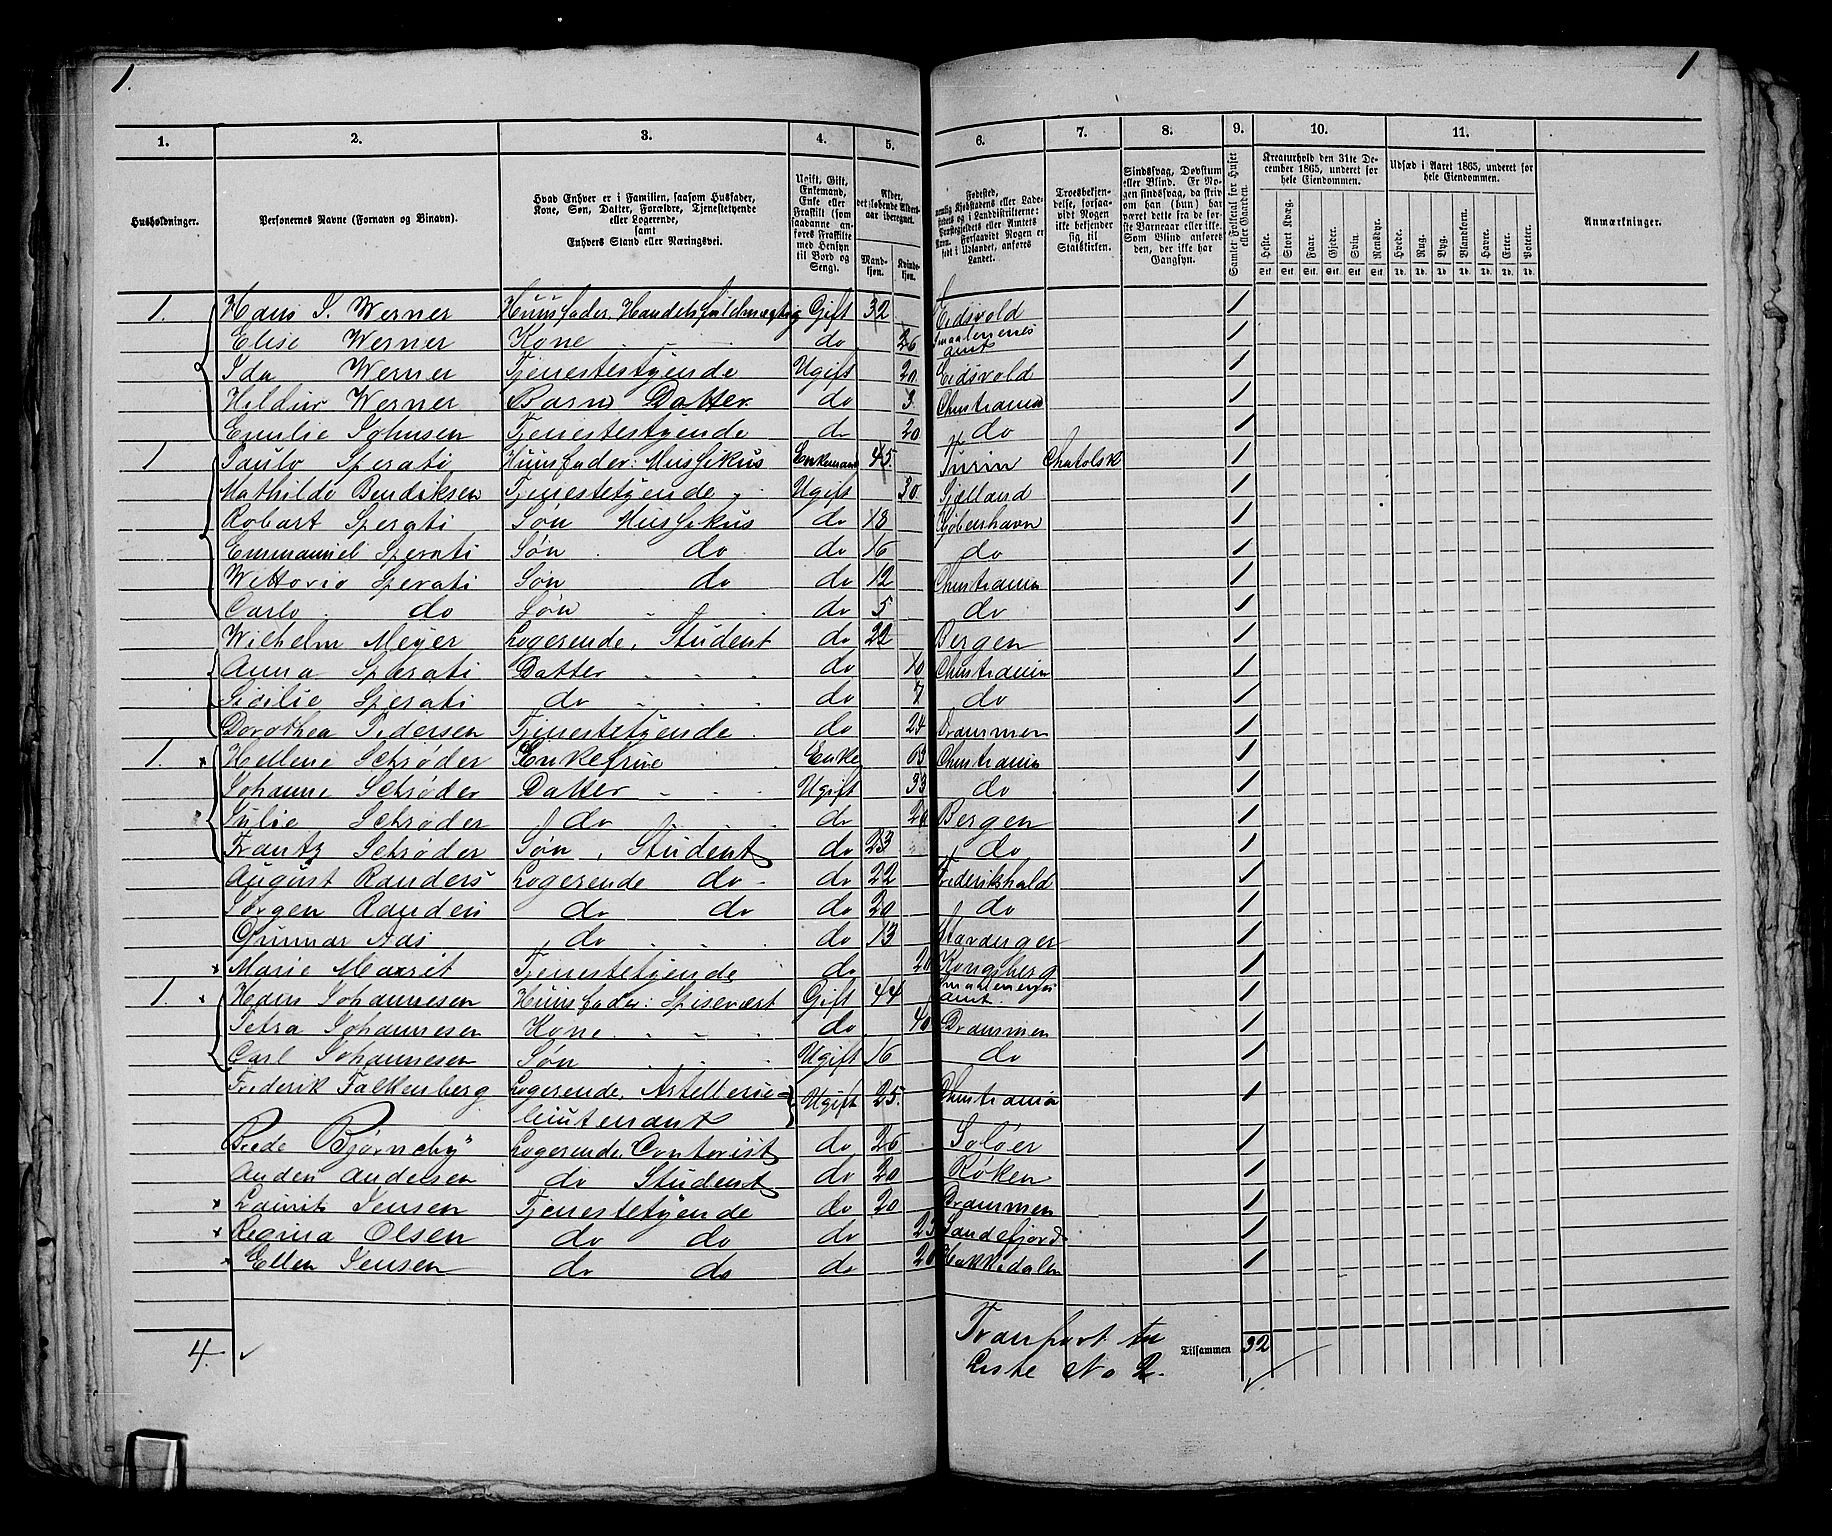 1.
1
1.
2.
3.
4.
5.
6.
7.
8.
9.
10.
11.
Husholdninger.
Personernes Navne (Fornavn og Binavn).
Hvad Enhver er i Familien, saasom Husfader,
Kone, Søn, Datter, Forældre, Tjenestetyende
eller Logerende,
samt
Enhvers Stand eller Næringsvei.
Ugift, Gift,
Enkemand,
Enke eller
Fraskilt (som
saadanne an-
føres Fraskilte
med Hensyn
til Bord og
Seng).
Alder,
det løbende Alders-
aar iberegnet.
Mand-
kjøn.
Kvinde-
kjøn.
Fødested,
nemlig Kjøbstadens eller Lade-
stedets og i Landdistrikterne:
Præstegjeldets eller Amtets
Navn. Forsaavidt Nogen er
født i Udlandet, anføres
Landet.
Troesbekjen-
delse, forsaa-
vidt Nogen
ikke bekjender
sig til
Statskirken.
Sindssvag, Døvstum
eller Blind. Er No-
gen sindssvag, da skriv
om han (hun) har
været dette fra de før-
ste Barneaar eller ikke.
Som Blind anføres
den, der ikke har
Gangsyn.
Samlet Folketal for Huset
eller Gaarden.
Kreaturhold den 31te De-
cember 1865, underet for
hele Eiendommen.
Heste. Stort Kvæg. Faar. Gjeder. Svin. Rensdyr.
Stk. Stk. Stk. Stk. Stk. Stk.
Udsæd i Aaret 1865, underet for
hele Eiendommen.
Hvede. Rug. Byg. Blandkorn. Havre. Erter. Poteter.
Td. Td. Td. Td. Td. Td. Td.
Anmærkninger.
1. Hans J. Werner Huusfader. Handelsfuldmægtig Gift 32 Eidsvold 1
Elise Werner Kone do 26 Smaalenenes Amt 1
Ida Werner Tjenestestyende Ugift 20 Eidsvold 1
Hildur Werner Barn Datter do 3. Christiania 1
Emilie Johnsen Tjenestestyende do 20 do 1
1 Paulo Sperati Huusfader: Mussikus Enkemand 45. Turin Chatolsk 1
Mathilde Bendiksen Tjenestetyende Ugift 30. Sjælland 1
Robart Sperati Søn Mussikus do 18 Kjøbenhavn 1
Emmanuel Sperati Søn do do 16 do 1
Wettorio Sperati Søn do do 12 Christiania 1
Carlo do Søn do 5 do 1
Wilhelm Meyer Logerende, Student do 22 Bergen 1
Anna Sperati Datter do 10 Christiania 1
Sicilie Sperati do do 7 do 1
Dorothea Pedersen Tjenestetyende do 24 Drammen 1
1. Hellene Schrøder Enkefrue Enke 63 Christiania 1
Johanne Schrøder Datter Ugift 33 do 1
Julie Schrøder do do Bergen 1
Frantz Schrøder Søn, Student do 23 do 1
August Randers Logerende do do 22 Frederikshald 1
Jørgen Randers do do do 20 do 1
Gunnar Aas do do 13 Stavanger 1
Marie Tjenestetyende do 20 Kongsberg 1
1. Hans Johannesen Huusfader: Spisevært Gift 44 Smaalenenes Amt. 1
Petra Johannesen Kone do 40 Drammen 1
Carl Johannesen Søn Ugift 16 do 1
Frederik Falkenberg Logerende, Artellerie=
lieutenant Ugift 25. Christiania 1
Brede Bjørneby Logerende, Contorist do 26 Soløer 1
Anders Andersen do Student do 20 Røken 1
Laurits Jensen Tjenestetyende do 20 Drammen 1
Regina Olsen do do do 23 Sandefjord 1
Ellen Jensen do do do 20 Hakkedalen 1
4.
Transport til
Liste No 2.
Tilsammen 32